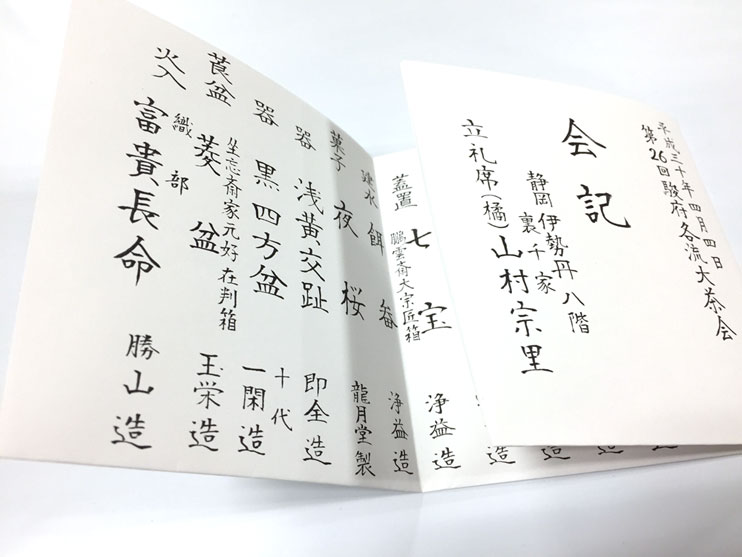 平成三十年四月四日
第26回駿府各流大茶会
会記
静岡伊勢丹八階
裏千家
立礼席(橘)山村宗里
蓋置 七宝 浄益造
鵬雲斎大宗匠箱
建水 餌畚 浄益造
菓子 夜桜 龍月堂製
器 浅黄交趾 即全造
十代
器 黒四方盆 一閑造
坐忘斎家元好在判箱
莨盆 菱盆 玉栄造
織部
火入 富貴長命 勝山造